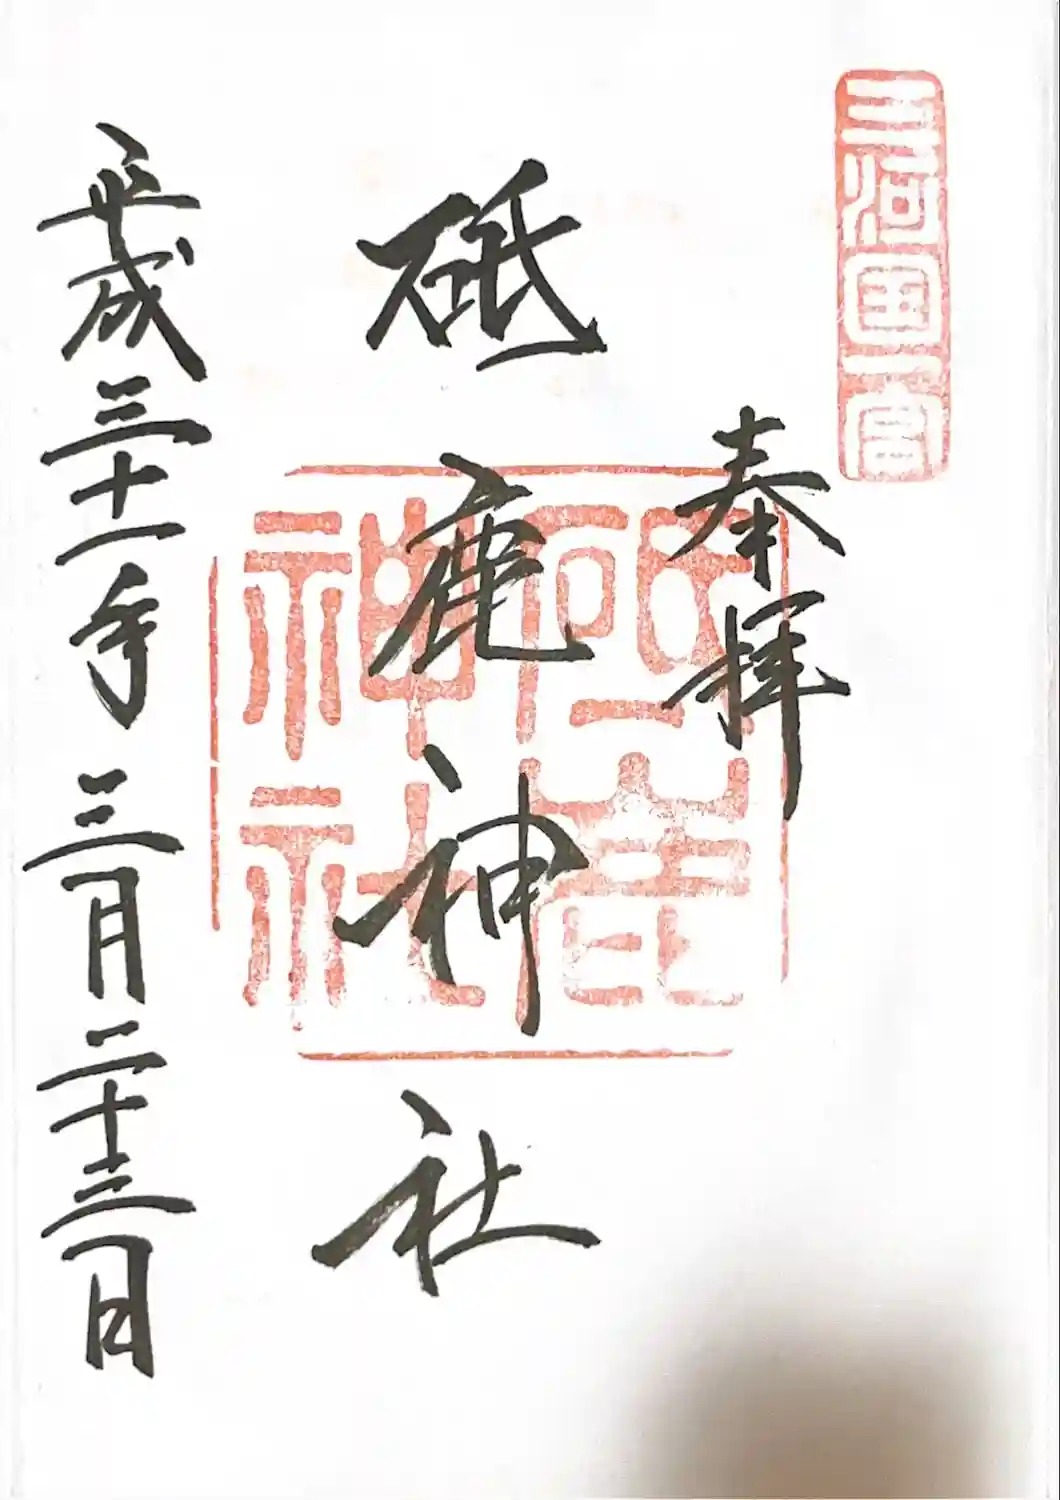 三河国一宮
奉拝
砥鹿神社
神社
平成三十一年三月二十三日